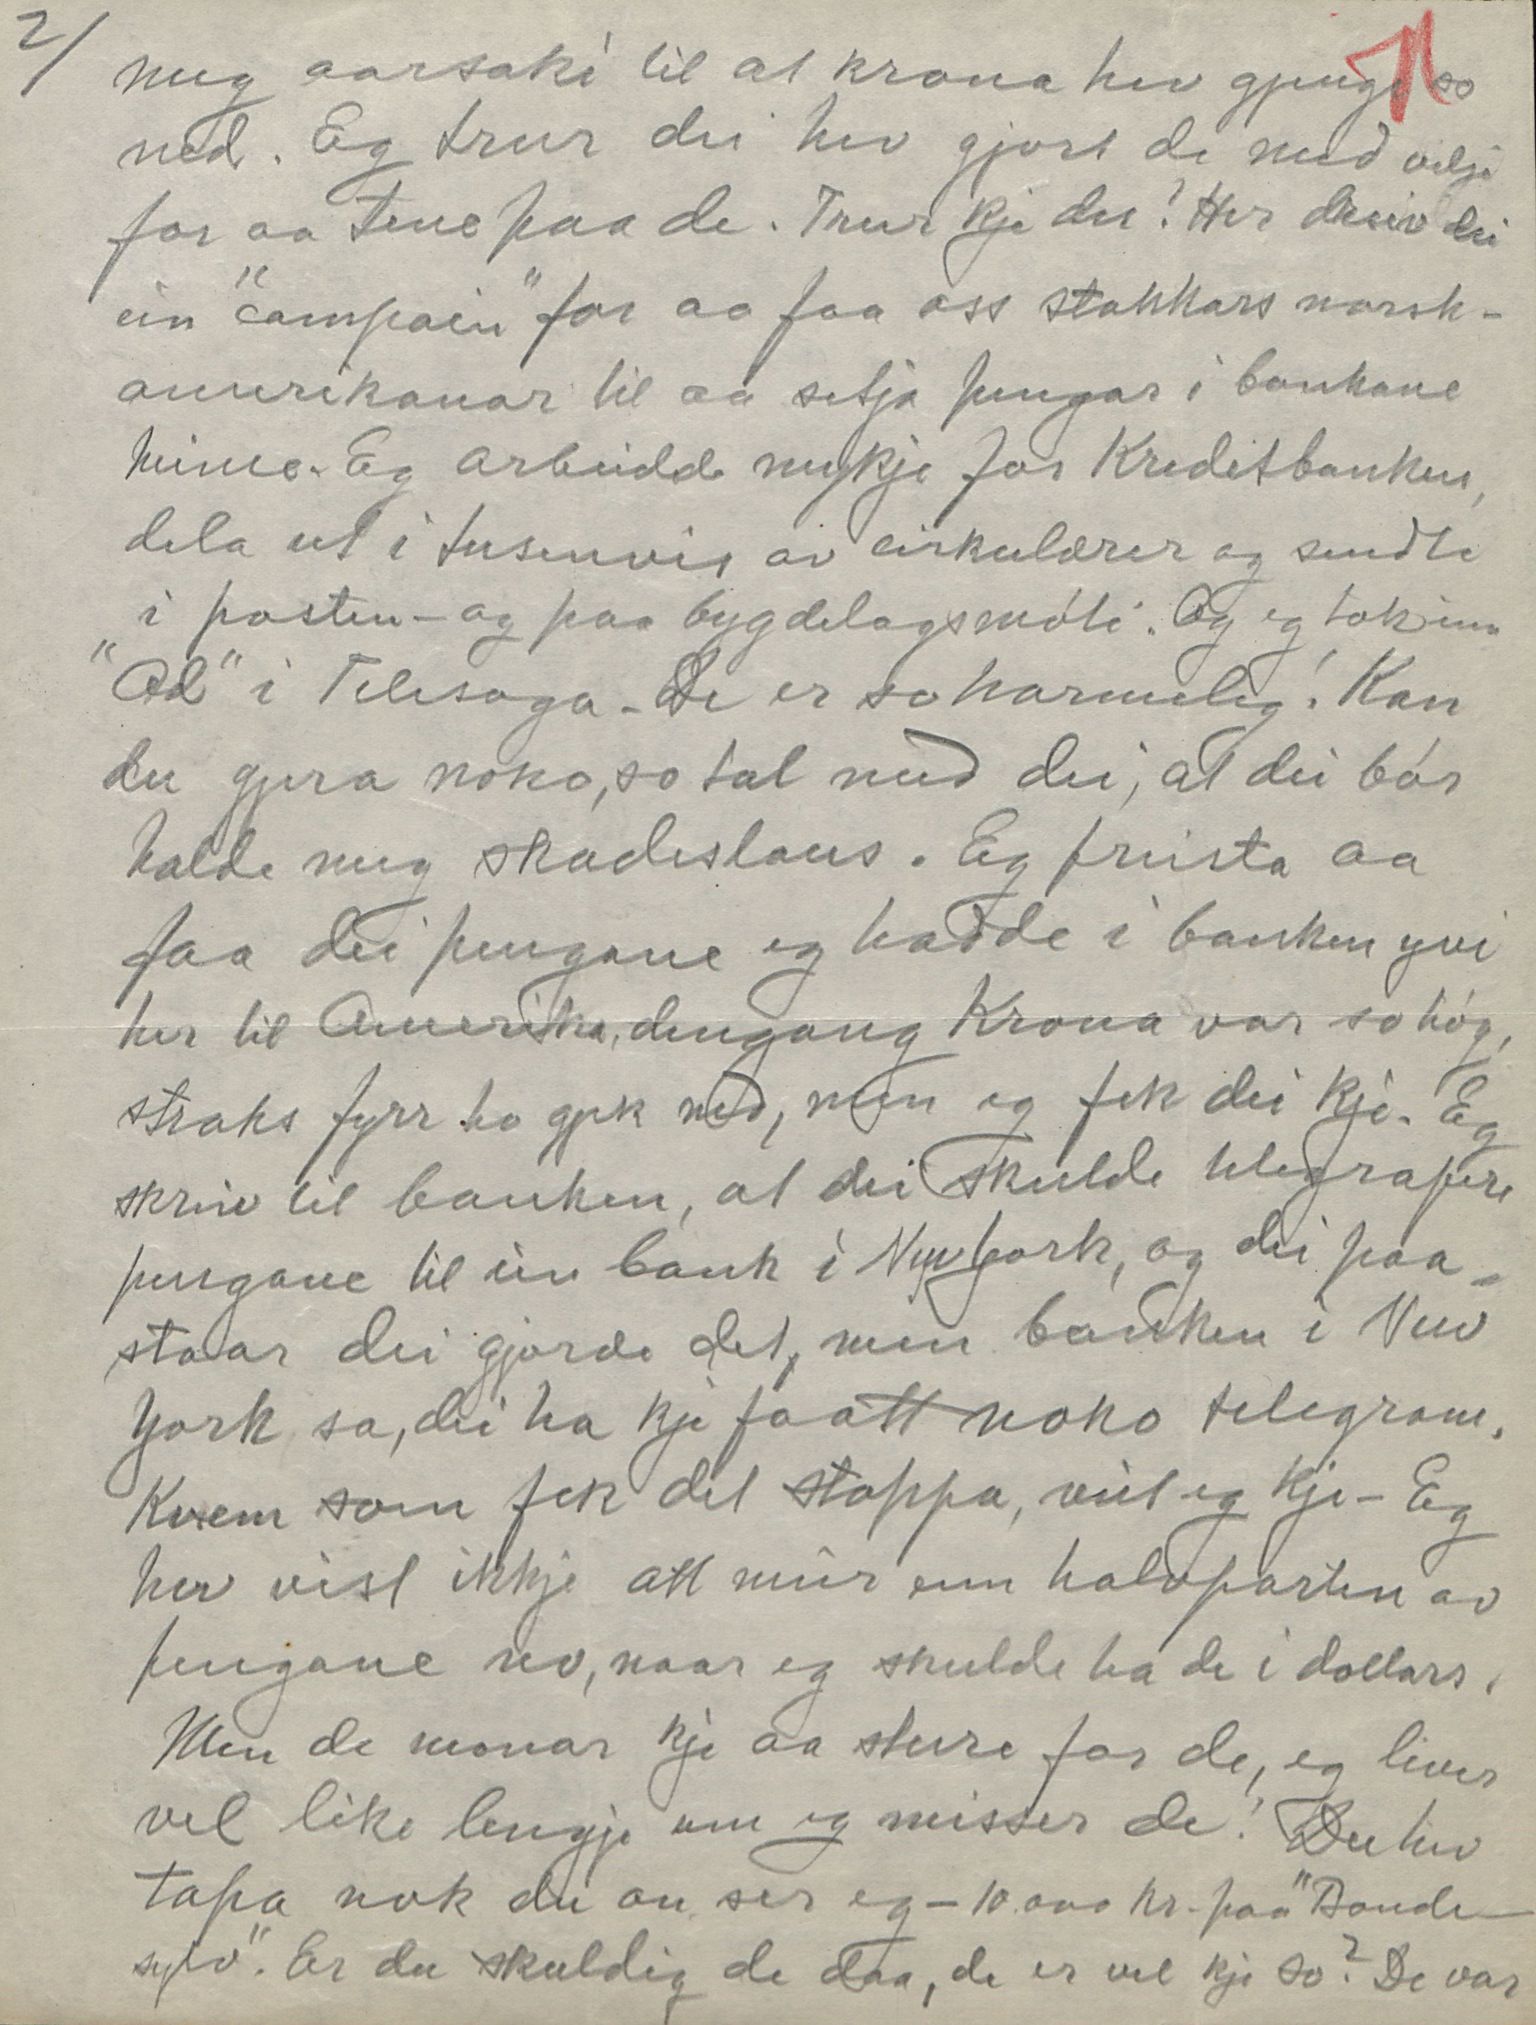 2/
meg aarsaki til at krona hev gjenge so
ned. Eg trur dei hev gjort de med vilje
for aa tene paa de. Trur kje du? Her dreiv dei
ein "campain" for aa faa oss stakkars norsk-
amerikanar til aa setja pengar i bankane
heime. Eg arbeidde mykje for Kreditbanken,
dela ut i tusenvis av cirkulærer og sendte
i posten - og paa bygdelagsmóti. Og eg tok inn
"Ad" i Telesoga - De er so harmeleg! Kan
du gjera noko, so tal med dei, at dei bór
halde meg skadeslaus. Eg freista aa
faa dei pengane eg hadde i banken yvi
her til Amerika, dengang Krona var so hóg,
straks fyrr ho gjek ned, men eg fek dei kje. Eg
skreiv til banken, at dei skulde telegrafere
pengane til ein bank i New York, og dei paa-
staar dei gjorde det, men banken i New
York sa, dei ha kje faatt noko telegram.
Kvem som fek det stoppa, veit eg kje - Eg
hev vist ikkje att meir enn halvparten av
pengane no, naar eg skulde ha de i dollars.
Men de monar kje aa sture for de, eg liver
vel like lengje um eg misser de! Du hev
tapa nok du au ser eg - 10.000 kr. paa "Bonde-
sylv". Er du skuldig de daa, de er vel kje so? De var